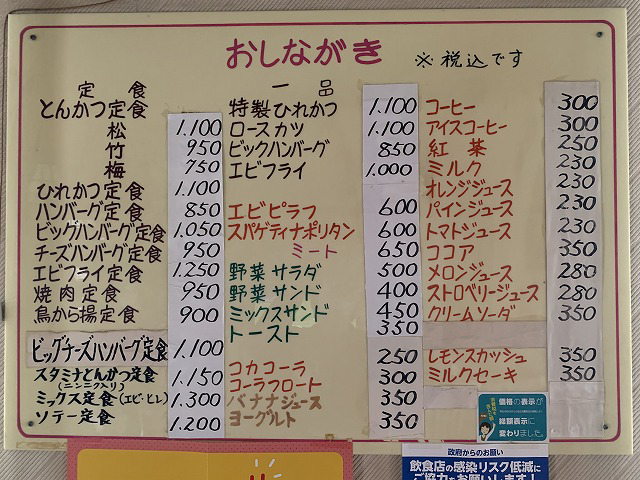 おしながき
※税込です
定食
とんかつ定食
松 1.100
竹 950
梅 750
ひれかつ定食 1.100
ハンバーグ定食 850
ビッグハンバーグ定食 1.050
チーズハンバーグ定食 950
エビフライ定食 1.250
焼肉定食 950
鳥から揚定食 900
ビッグチーズハンバーグ定食 1.100
スタミナとんかつ定食 1.150
(ニンニク入り)
ミックス定食(エビ・ヒレ) 1.300
ソテー定食 1.200
一品
特製ひれかつ 1.100
ロースカツ 1.100
ビックハンバーグ 850
エビフライ 1.000
エビピラフ 600
スパゲティナポリタン 600
ミート 650
野菜サラダ 500
野菜サンド 400
ミックスサンド 450
トースト 350
コカコーラ 250
コーラフロート 300
バナナジュース 350
ヨーグルト 350
コーヒー 300
アイスコーヒー 300
紅茶 250
ミルク 230
オレンジジュース 230
パインジュース 230
トマトジュース 230
ココア 350
メロンジュース 280
ストロベリージュース 280
クリームソーダ 350
レモンスカッシュ 350
ミルクセーキ 350
価格の表示が
総額表示に
変わりました。
政府からのお願い
飲食店の感染リスク低減に
ご協力をお願いします!